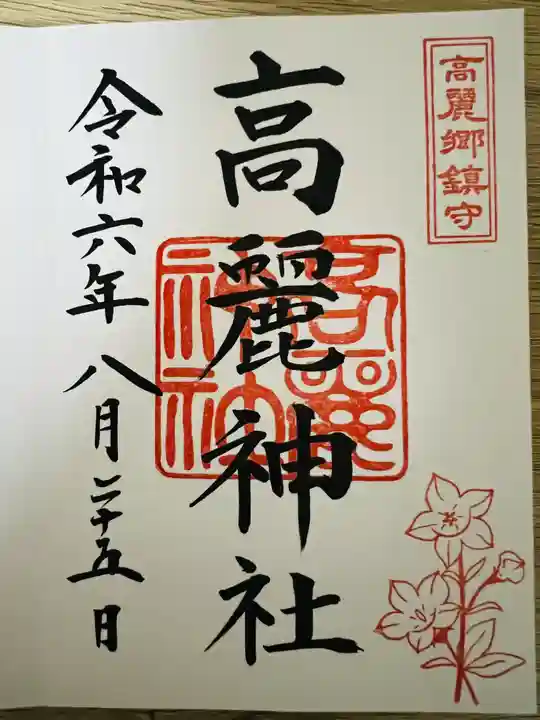 高麗郷鎮守
高麗神社
高麗神社
令和六年八月二十五日